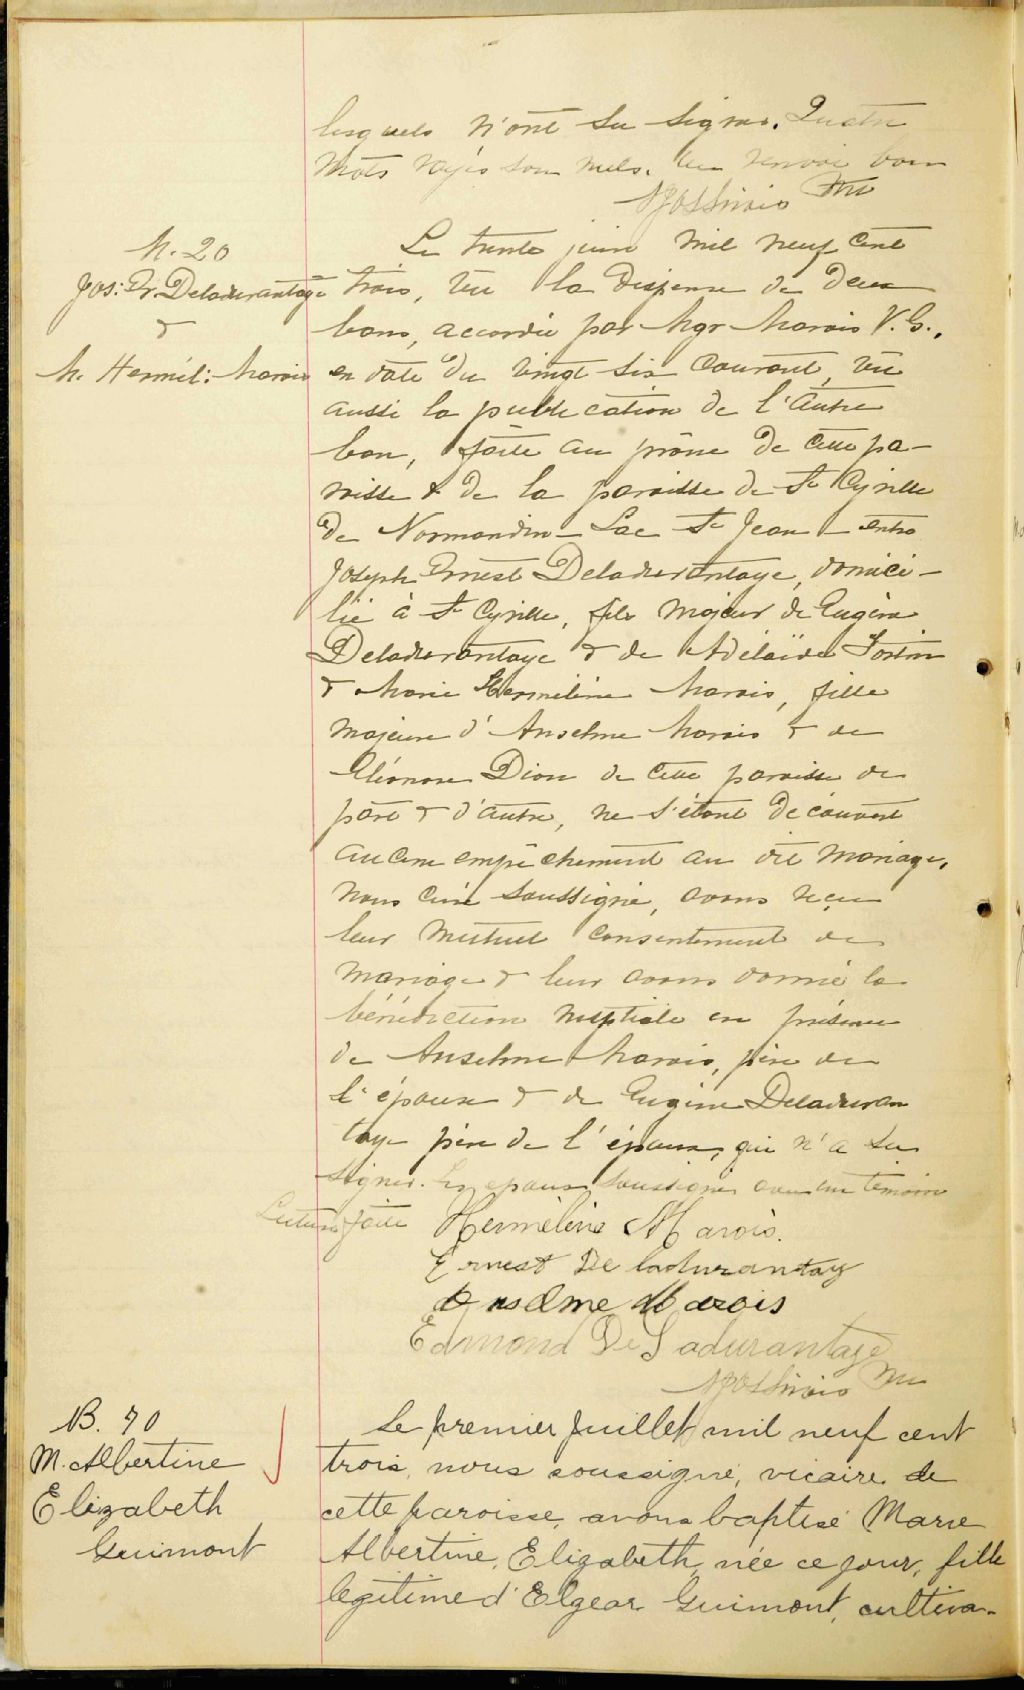 lesquels n'ont su signer. Quatre
mots rayés sont nuls. Un renvoi bon
Ptre
M. 20
Jos: Er. Deladurantaye
&
M. Hermél: Marois
Le trente juin mil neuf cent
trois, vu la dispense de deux
bans, accordée par Mgr Marois V. G.,
en date du vingt six courant, vu
aussi la publication de l'autre
ban, faite au prône de cette pa-
roisse & de la paroisse de St Cyrille
de Normandin - Lac St Jean - entre
Joseph Ernest Deladurantaye, domici-
lié à St Cyrille, fils majeur de Eugène
Deladurantaye & de Adélaïde Fortin
& Marie Herméline Marois, fille
majeure d'Anselme Marois & de
Eléonore Dion de cette paroisse de
part & d'autre, ne s'étant découvert
aucun empêchement au dit mariage,
nous curé soussigné, avons reçu
leur mutuel consentement de
mariage & leur avons donné la
bénédiction nuptiale en présence
de Anselme Marois, père de
l'épouse & de Eugène Deladuran
taye père de l'époux, qui n'a su
signer. Les époux soussignés avec un témoin
Lecture faite
Herméline Marois.
Ernest De ladurantay
Anselme Marois
Edmond De Ladurantaye
Ptre
B. 70
M. Albertine
Elizabeth
Guimont
Le premier Juillet mil neuf cent
trois, nous soussigné, vicaire de
cette paroisse, avons baptisé Marie
Albertine, Elizabeth, née ce jour, fille
légitime d'Elgear Guimont, cultiva-